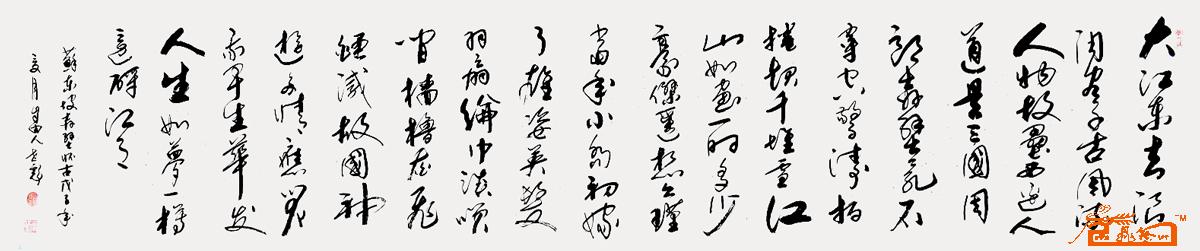 大江東去浪
淘尽千古風流
人物故壘西邊人
道是三國周
郎赤壁亂石
穿空驚濤拍
捲起千堆雪江
山如畫一时多少
豪傑遥想公瑾
當年小喬初嫁
了雄姿英發
羽扇綸巾談笑
間檣櫓灰飛
煙滅故國神
遊多情應笑
我早生華发
人生如夢一樽
還酹江月
蘇東坡赤壁怀古戊子年
夏月
TM